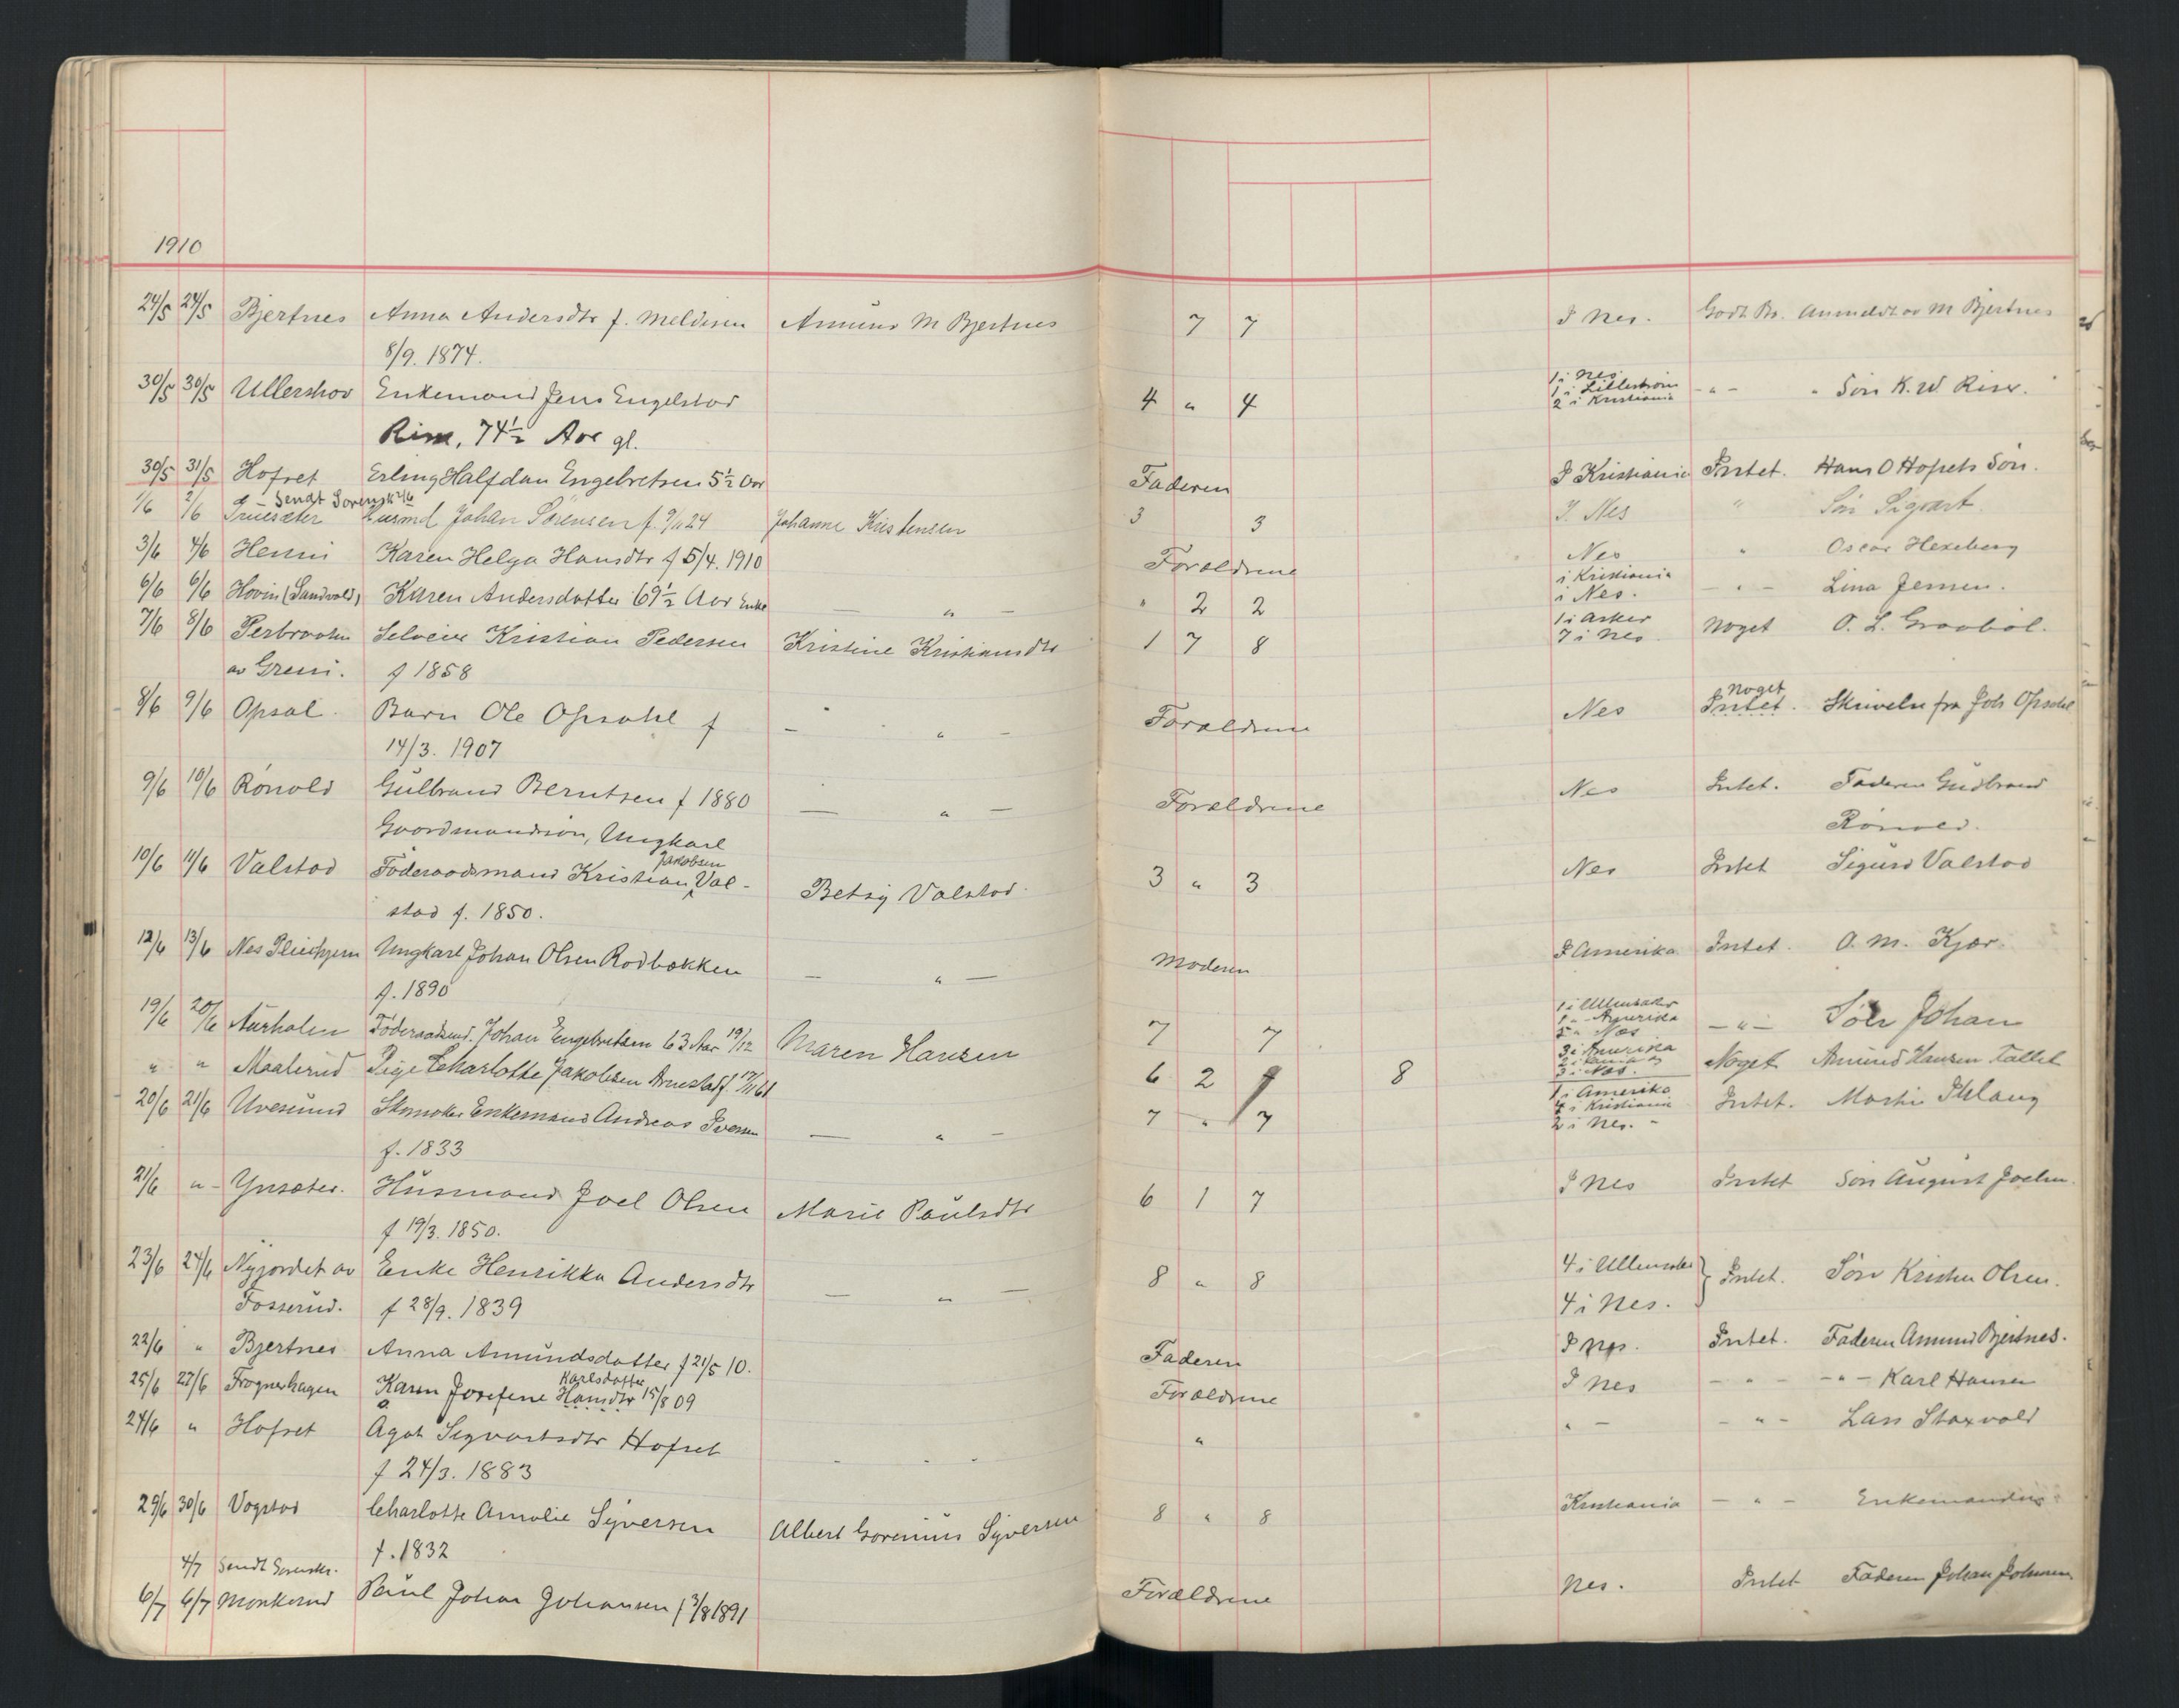 1910
24/5 24/5 Bjertnes Anna Andersdtr f. Meldisen Amund M Bjertnes 7 7 I Nes. Godt Bo. Anmeldt av M Bjertnes
8/9. 1874.
30/5 30/5 Ullershov Enkemand Jens Engelstad 4 " 4 1 i Nes 1 i Lillestrøm 2 i Kristiania - " - " Søn K. W Rise.
Rise, 74½ Aar gl.
30/5 31/5 Hofset Erling Halfdan Engebretsen 5½ Aar Faderen I Kristiania Intet. Hans O Hofsets Søn.
Sendt Sorensk
1/6 2/6 Husmd Johan Sørensen f. 9/11 24 Johanne Kristensen 3 3 I Nes " Søn Sigvart
3/6 4/6 Henni Karen Helga Hansdtr f 5/4. 1910 Foreldrene Nes " Oscar Hexeberg
6/6 6/6 Hovin (Sandvold) Karen Andersdatter 69½ Aar Enke — " — " 2 2 i Kristiania i Nes. - " - Lina Jensen.
7/6 8/6 Perbraaten Selveier Kristian Pedersen Kristine Kristiansdtr 1 7 8 1 i Asker 7 i Nes Noget O. L. Graabøl.
av Greni. f 1858
8/6 9/6 Opsal. Barn Ole Opsahl f — " — Foreldrene Nes Noget Intet. Skrivelse fra Joh Opsahl
14/3. 1907
9/6 10/6 Rønold Gulbrand Berntsen f 1880 — " — Foreldrene Nes Intet. Faderen Gudbrand
Gaardmandssøn, Ungkarl Rønold.
10/6 11/6 Valstad Føderaadsmand Kristian Jakobsen Val- Betsy Valstad. 3 " 3 Nes Intet Sigurd Valstad
stad f. 1850.
12/6 13/6 Nes Pleiehjem Ungkarl Johan Olsen Rødbækken — " — Moderen I Amerika Intet. O. M. Kjær.
f. 1890
19/6 20/6 Aurholen Føderaadsmd. Johan Engebretsen 63 Aar 19/12 Maren Hansen 7 7 1 i Ullensaker 1 " Amerika 5 " Nes — " — Søn Johan
" " Maalerud Pige Charlotte Jakobsen 17/11 61 6 2 8 3 i Amerika 3 i Nes. Noget Amund Hansen
20/6 21/6 Uvesund Skomaker Enkemand Andreas Iversen — " — 7 " 7 1 i Amerika 4 i Kristiania 2 i Nes. Intet. Martin
f. 1833
21/6 " - Ynsæter. Husmand Joel Olsen Marie Paulsdtr 6 1 7 I Nes Intet Søn August Joelsen.
f 19/3. 1850.
23/6 24/6 Nyjordet av Enke Henrikka Andersdtr — " — 8 " 8 4 i Ullensaker } Intet. Søn Kristen Olsen.
Fosserud. f 28/9. 1839 4 i Nes.
22/6 " Bjertnes Anna Amundsdatter f 21/5 10. Faderen I Nes. Intet. Faderen Amund Bjertnes.
25/6 27/6 Frognerhagen Karen Josefine Karlsdatter Hansdtr 15/8 09 Foreldrene I Nes - " - - " - Karl Hansen
24/6 " Hofset Agot Sigvartsdtr Hofset " " - - " - Lars Staxvold
f 24/3. 1883
29/6 30/6 Vogstad Charlotte Amalie Syversen Albert Severinus Syversen 8 " 8 Kristiania — " — Enkemanden
f. 1832
4/7 Sendt Sorenskr.
6/7 6/7 Monkerud Paul Johan Johansen f 3/8 1891 Foreldrene Nes. Intet Faderen Johan Johansen